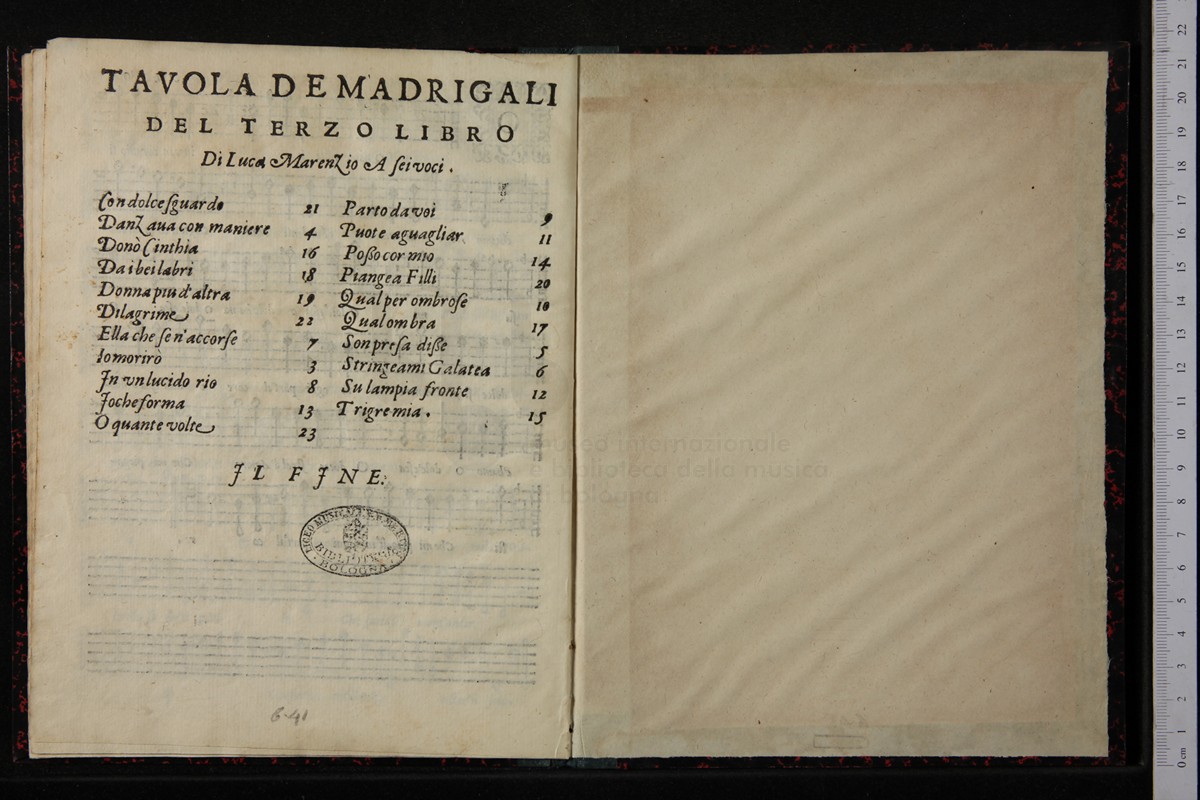 TAVOLA DE MADRIGALI
DEL TERZO LIBRO
Di Luca Marenzio A sei voci.
Con dolce sguardo 21
Danzaua con maniere 4
Donò Cinthia 16
Da i bei labri 18
Donna piu d'altra 19
Di lagrime 22
Ella che se n'accorse 7
Io morirò 3
In vn lucido rio 8
Io che forma 13
O quante volte 23
Parto da voi 9
Puote aguagliar 11
Posso cor mio 14
Piangea Filli 20
Qual per ombrose 10
Qual ombra 17
Son presa disse 5
Stringeami Galatea 6
Su l'ampia fronte 12
Trigre mia. 15
IL FINE.
LICEO MUSICALE
BIBLIOTECA
BOLOGNA
6-41
museo internazionale
e biblioteca della musica
di bologna
0 cm 1 2 3 4 5 6 7 8 9 10 11 12 13 14 15 16 17 18 19 20 21 22